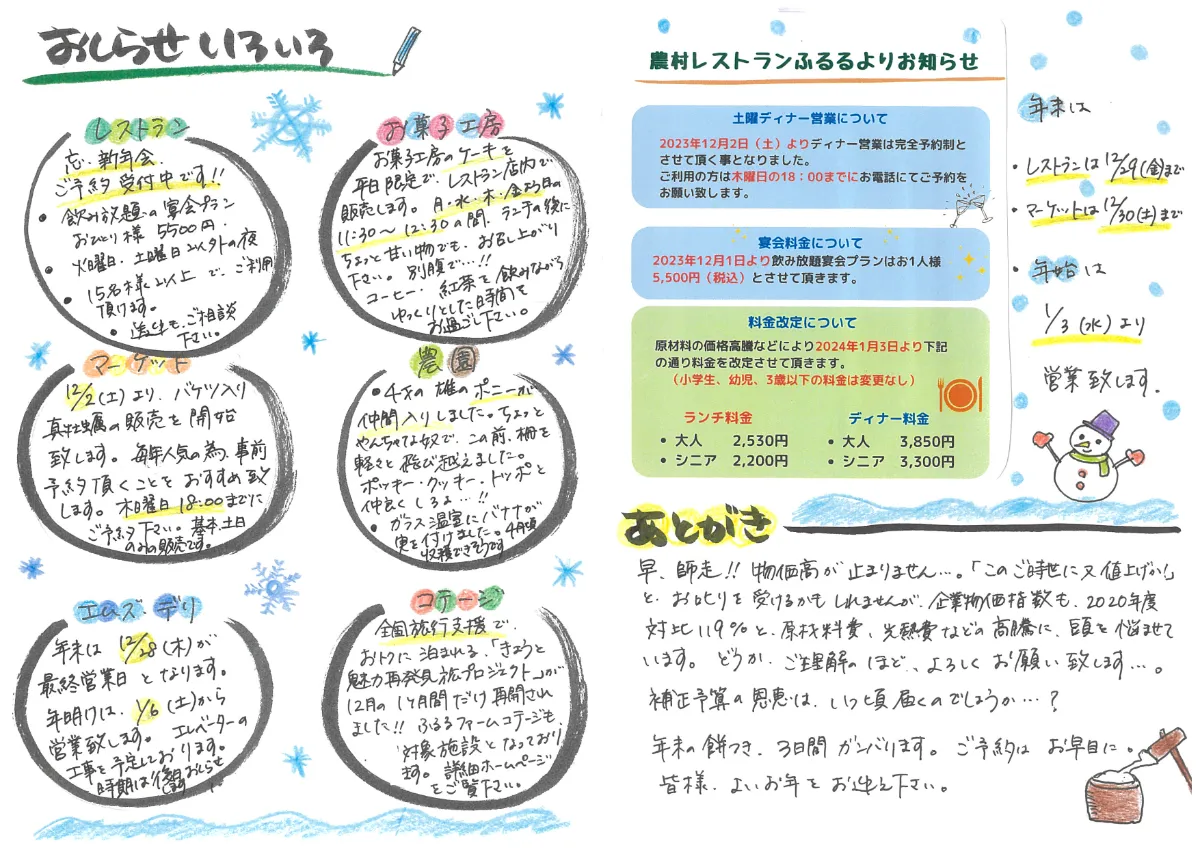 おしらせいろいろ
レストラン
忘・新年会
ご予約受付中です!!
• 飲み放題の宴会プラン
おひとり様 5500円.
• 火曜日、土曜日以外の夜
• 15名様以上で、ご利用
頂けます。
• 送迎も、ご相談
下さい。
お菓子工房
お菓子工房のケーキを
平日限定で、レストラン店内で
販売します。月・水・木・金お昼の
11:30〜12:30の間、ランチの後に
ちょっと甘い物でも、お召し上がり
下さい。別腹で…!!
コーヒー、紅茶を飲みながら
ゆっくりとした時間を
お過ごし下さい。
マーケット
12/2(土)より、バケツ入り
真牡蠣の販売を開始
致します。毎年人気の為、事前
予約頂くことをおすすめ致
します。木曜日18:00までに
ご予約下さい。基本、土日
のみの販売です。
農園
• 4才の雄のポニーが
仲間入りしました。ちょっと
やんちゃな奴で、この前、柵を
軽々と飛び越えました。
ポッキー・クッキー、トッポと
仲良くしろよ…!!
• ガラス温室にバナナが
実を付けました。4月頃
収穫できそうです
エムズ・デリ
年末は 12/28(木)が
最終営業日となります。
年明けは、1/6(土)から
営業致します。エレベーターの
工事を予定しております。
時期は後日おしらせ
します
コテージ
全国旅行支援で、
おトクに泊まれる、「きょうと
魅力再発見旅プロジェクト」が
12月の1ヶ月間だけ再開され
ました!! ふるるファームコテージも、
対象施設となっており
ます。詳細ホームページ
をご覧下さい。
農村レストランふるるよりお知らせ
土曜ディナー営業について
2023年12月2日(土)よりディナー営業は完全予約制と
させて頂く事となりました。
ご利用の方は木曜日の18:00までにお電話にてご予約を
お願い致します。
宴会料金について
2023年12月1日より飲み放題宴会プランはお1人様
5,500円(税込)とさせて頂きます。
料金改定について
原材料の価格高騰などにより2024年1月3日より下記
の通り料金を改定させて頂きます。
(小学生、幼児、3歳以下の料金は変更なし)
ランチ料金
• 大人 2,530円
• シニア 2,200円
ディナー料金
• 大人 3,850円
• シニア 3,300円
年末は
• レストランは12/29(金)まで
• マーケットは12/30(土)まで
• 年始は
1/3(水)より
営業致します.
あとがき
早、師走!! 物価高が止まりません…。「このご時世に又値上げか!」
と、お叱りを受けるかもしれませんが、企業物価指数も、2020年度
対比119%と、原材料費、光熱費などの高騰に、頭を悩ませて
います。どうか、ご理解のほど、よろしくお願い致します…。
補正予算の恩恵は、いつ頃届くのでしょうか…?
年末の餅つき、3日間ガンバリます。ご予約はお早目に。
皆様、よいお年をお迎え下さい。